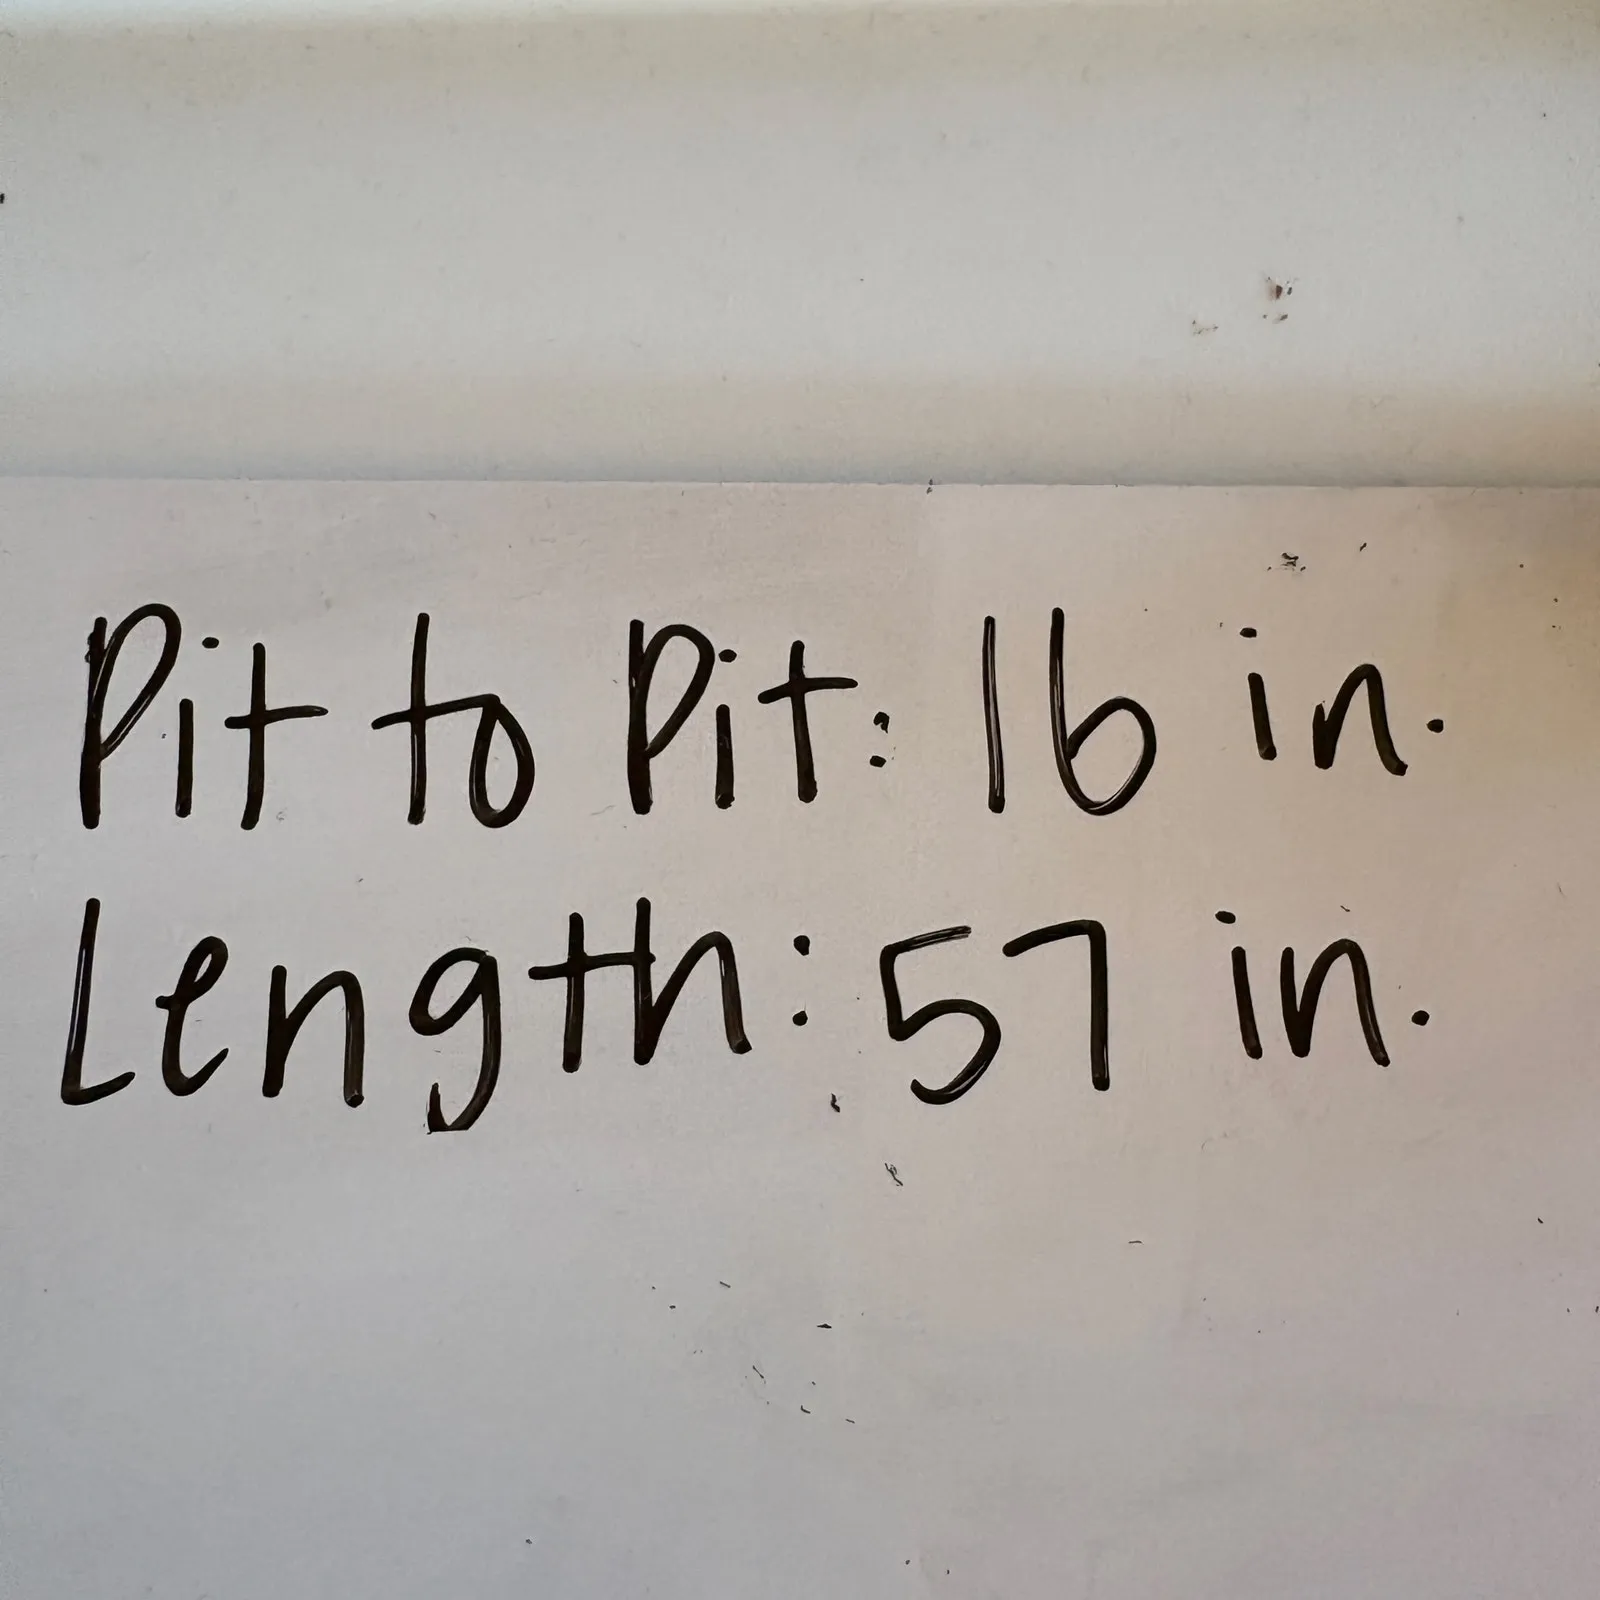 Pit to Pit: 16 in.
Length: 57 in.